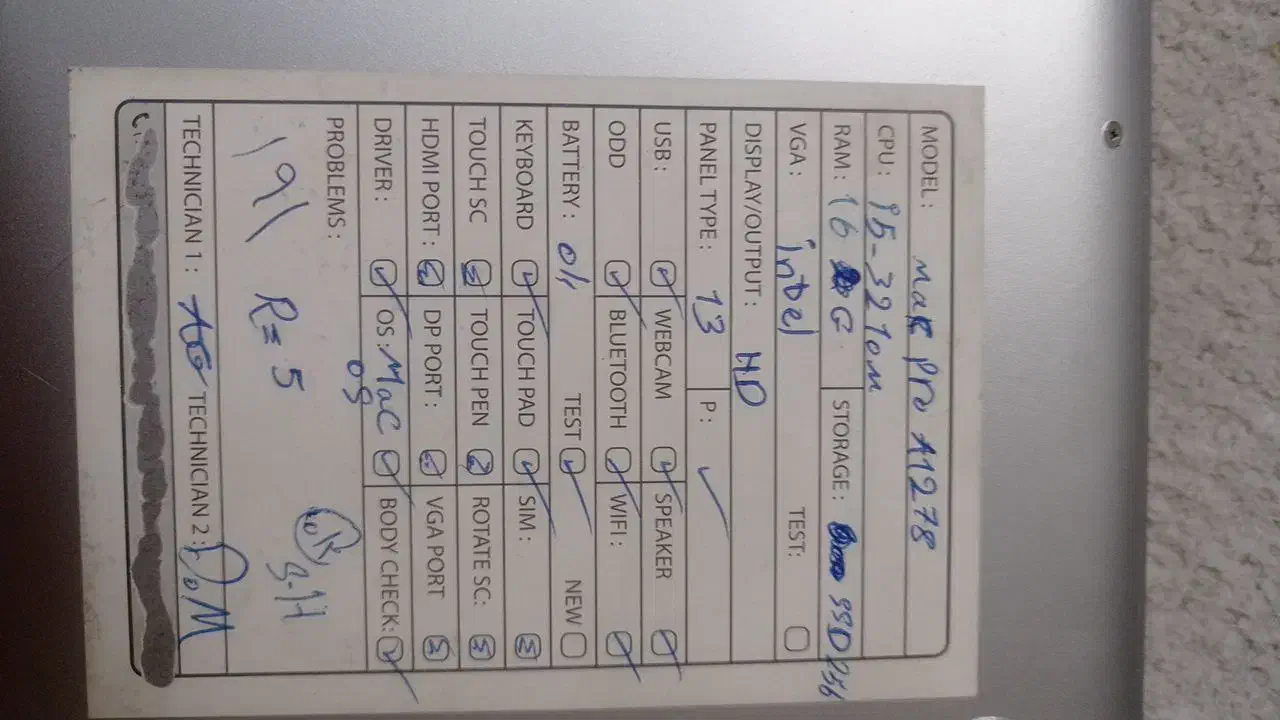 MODEL : Mak pro A1278
CPU : i5-3210m
RAM : 16 G STORAGE : SSD 256
VGA : intel TEST:
DISPLAY/OUTPUT : HD
PANEL TYPE : 13 P :
USB : WEBCAM SPEAKER
ODD BLUETOOTH WIFI :
BATTERY : TEST NEW
KEYBOARD TOUCH PAD SIM :
TOUCH SC TOUCH PEN ROTATE SC:
HDMI PORT : DP PORT : VGA PORT
DRIVER : OS : Mac OS BODY CHECK:
PROBLEMS :
191 R= 5
TECHNICIAN 1 : TECHNICIAN 2 :